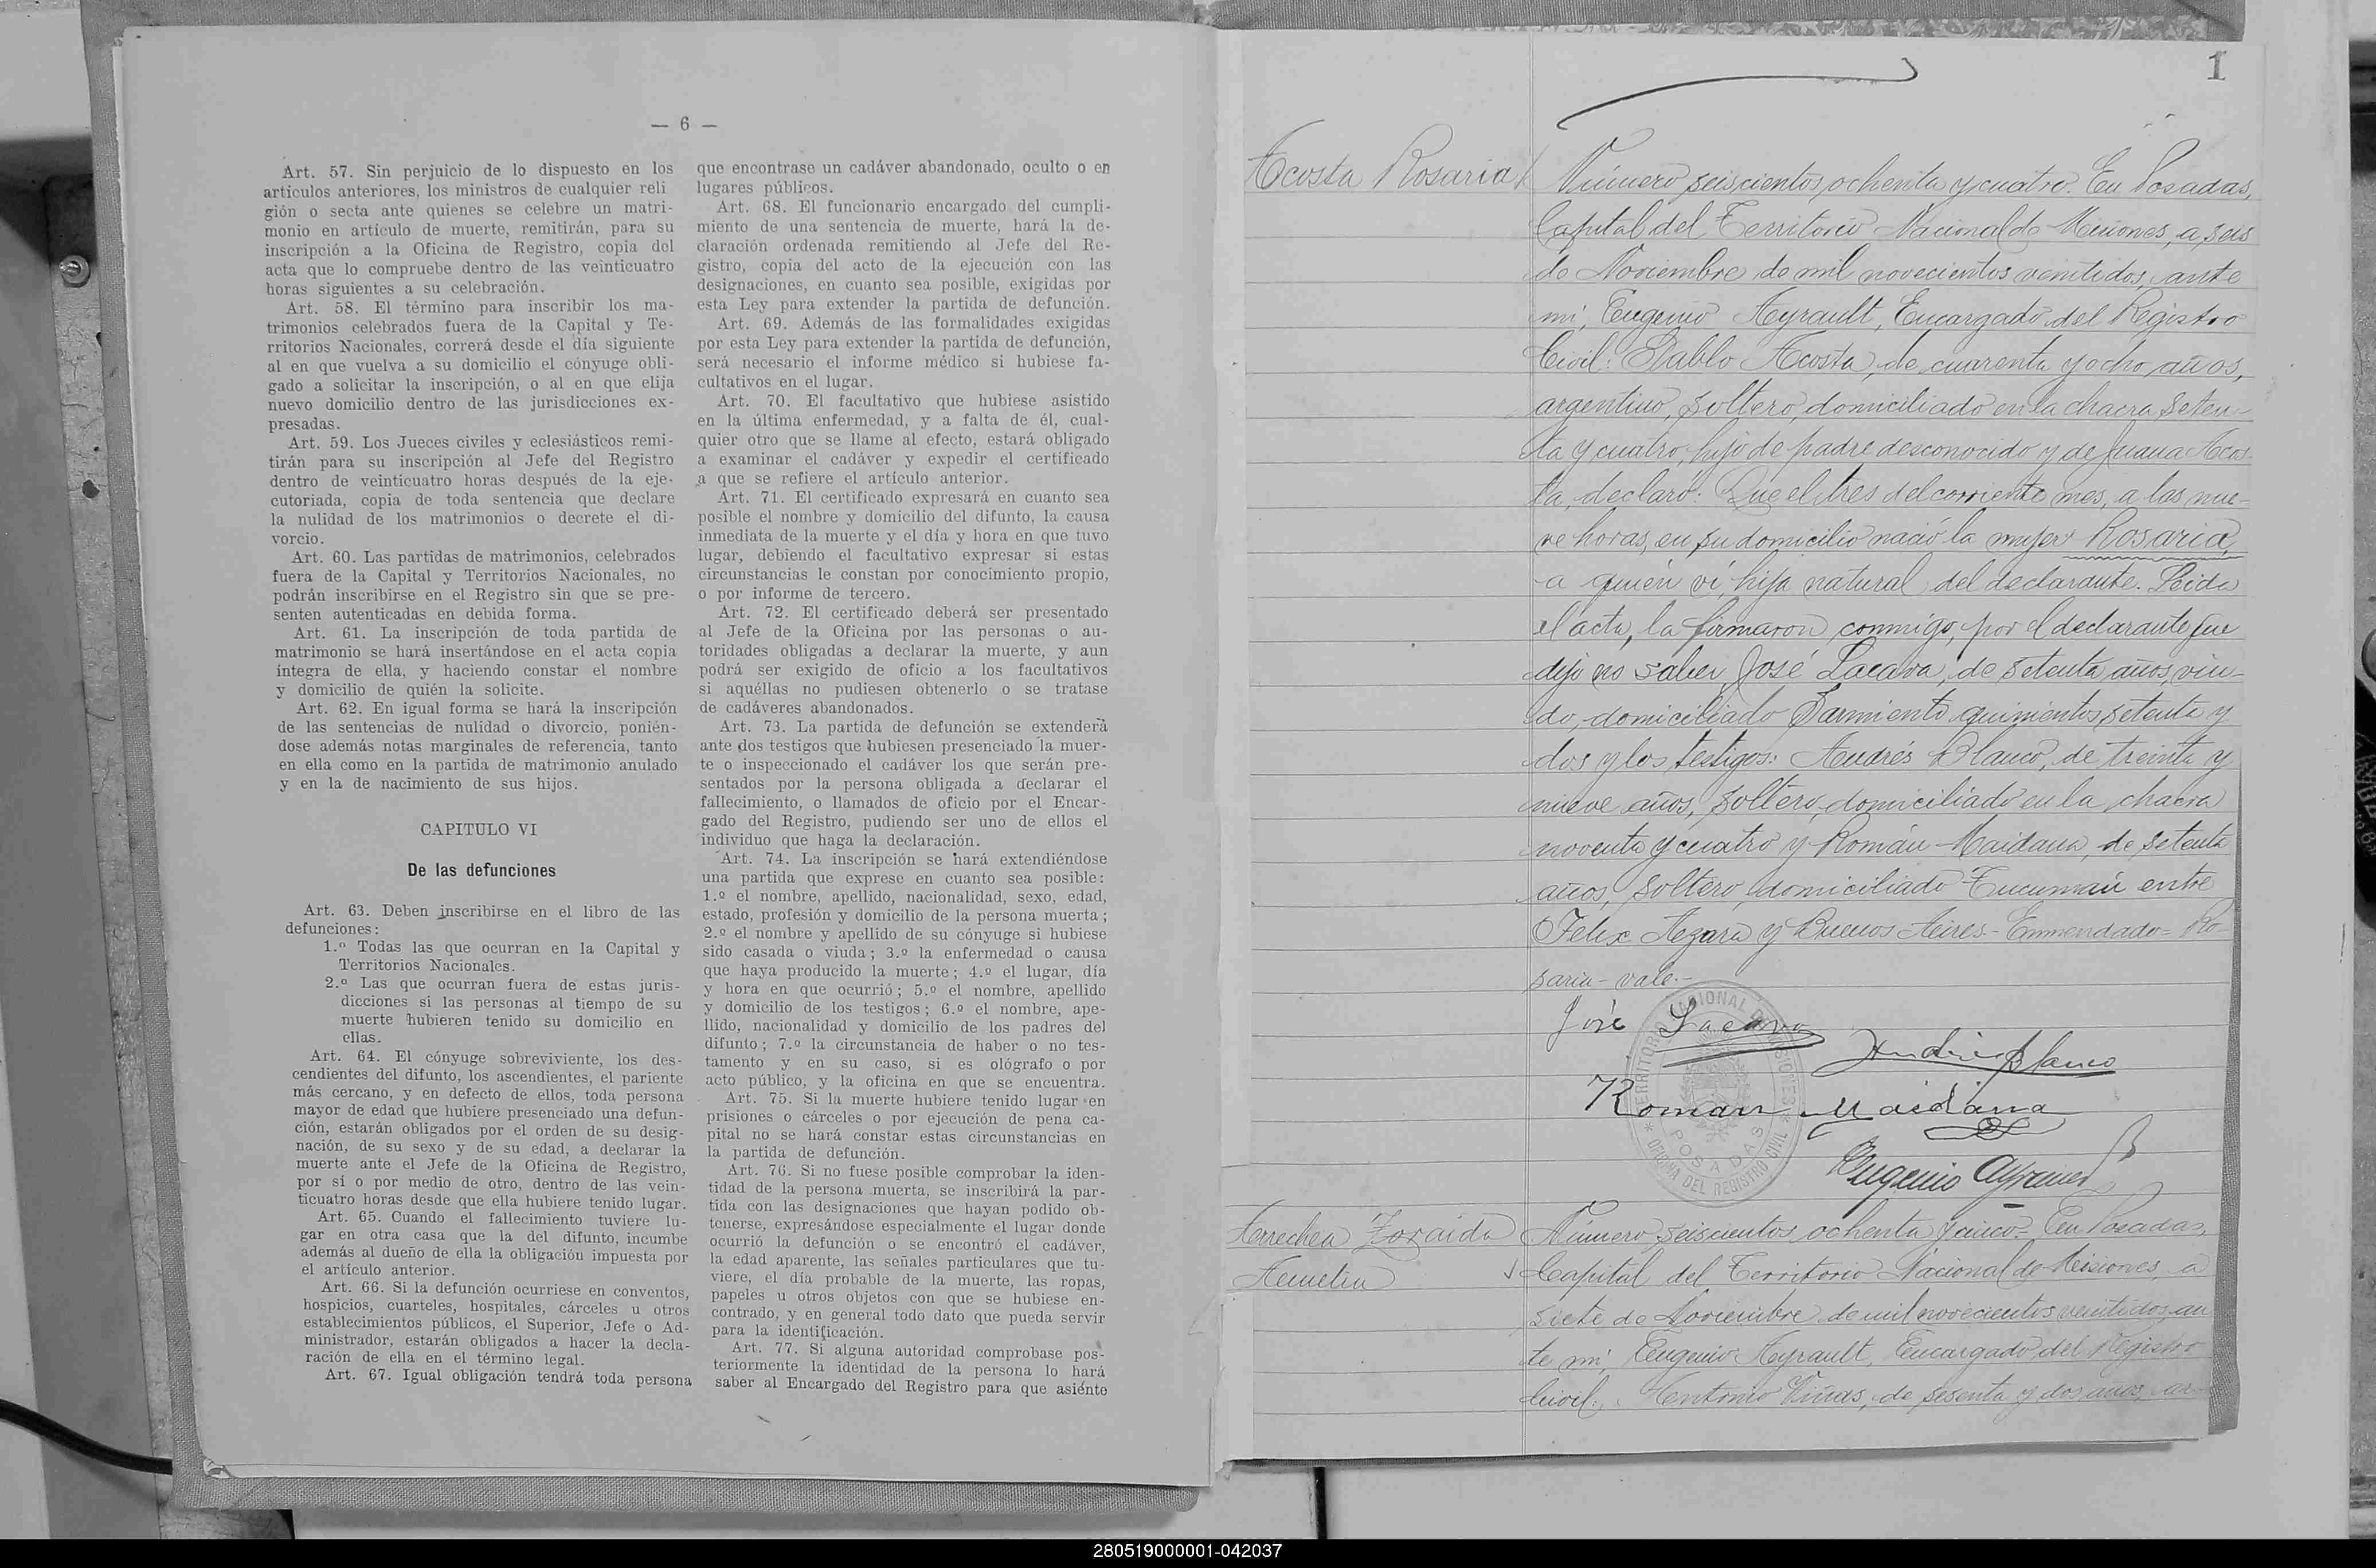 — 6 —
Art. 57. Sin perjuicio de lo dispuesto en los
artículos anteriores, los ministros de cualquier reli
gión o secta ante quienes se celebre un matri-
monio en artículo de muerte, remitirán, para su
inscripción a la Oficina de Registro, copia del
acta que lo compruebe dentro de las veinticuatro
horas siguientes a su celebración.
Art. 58. El término para inscribir los ma-
trimonios celebrados fuera de la Capital y Te-
rritorios Nacionales, correrá desde el día siguiente
al en que vuelva a su domicilio el cónyuge obli-
gado a solicitar la inscripción, o al en que elija
nuevo domicilio dentro de las jurisdicciones ex-
presadas.
Art. 59. Los Jueces civiles y eclesiásticos remi-
tirán para su inscripción al Jefe del Registro
dentro de veinticuatro horas después de la eje-
cutoriada, copia de toda sentencia que declare
la nulidad de los matrimonios o decrete el di-
vorcio.
Art. 60. Las partidas de matrimonios, celebrados
fuera de la Capital y Territorios Nacionales, no
podrán inscribirse en el Registro sin que se pre-
senten autenticadas en debida forma.
Art. 61. La inscripción de toda partida de
matrimonio se hará insertándose en el acta copia
íntegra de ella, y haciendo constar el nombre
y domicilio de quién la solicite.
Art. 62. En igual forma se hará la inscripción
de las sentencias de nulidad o divorcio, ponién-
dose además notas marginales de referencia, tanto
en ella como en la partida de matrimonio anulado
y en la de nacimiento de sus hijos.
CAPITULO VI
De las defunciones
Art. 63. Deben inscribirse en el libro de las
defunciones:
1.º Todas las que ocurran en la Capital y
Territorios Nacionales.
2.º Las que ocurran fuera de estas juris-
dicciones si las personas al tiempo de su
muerte hubieren tenido su domicilio en
ellas.
Art. 64. El cónyuge sobreviviente, los des-
cendientes del difunto, los ascendientes, el pariente
más cercano, y en defecto de ellos, toda persona
mayor de edad que hubiere presenciado una defun-
ción, estarán obligados por el orden de su desig-
nación, de su sexo y de su edad, a declarar la
muerte ante el Jefe de la Oficina de Registro,
por sí o por medio de otro, dentro de las vein-
ticuatro horas desde que ella hubiere tenido lugar.
Art. 65. Cuando el fallecimiento tuviere lu-
gar en otra casa que la del difunto, incumbe
además al dueño de ella la obligación impuesta por
el artículo anterior.
Art. 66. Si la defunción ocurriese en conventos,
hospicios, cuarteles, hospitales, cárceles u otros
establecimientos públicos, el Superior, Jefe o Ad-
ministrador, estarán obligados a hacer la decla-
ración de ella en el término legal.
Art. 67. Igual obligación tendrá toda persona
que encontrase un cadáver abandonado, oculto o en
lugares públicos.
Art. 68. El funcionario encargado del cumpli-
miento de una sentencia de muerte, hará la de-
claración ordenada remitiendo al Jefe del Re-
gistro, copia del acto de la ejecución con las
designaciones, en cuanto sea posible, exigidas por
esta Ley para extender la partida de defunción.
Art. 69. Además de las formalidades exigidas
por esta Ley para extender la partida de defunción,
será necesario el informe médico si hubiese fa-
cultativos en el lugar.
Art. 70. El facultativo que hubiese asistido
en la última enfermedad, y a falta de él, cual-
quier otro que se llame al efecto, estará obligado
a examinar el cadáver y expedir el certificado
a que se refiere el artículo anterior.
Art. 71. El certificado expresará en cuanto sea
posible el nombre y domicilio del difunto, la causa
inmediata de la muerte y el día y hora en que tuvo
lugar, debiendo el facultativo expresar si estas
circunstancias le constan por conocimiento propio,
o por informe de tercero.
Art. 72. El certificado deberá ser presentado
al Jefe de la Oficina por las personas o au-
toridades obligadas a declarar la muerte, y aun
podrá ser exigido de oficio a los facultativos
si aquéllas no pudiesen obtenerlo o se tratase
de cadáveres abandonados.
Art. 73. La partida de defunción se extenderá
ante dos testigos que hubiesen presenciado la muer-
te o inspeccionado el cadáver los que serán pre-
sentados por la persona obligada a declarar el
fallecimiento, o llamados de oficio por el Encar-
gado del Registro, pudiendo ser uno de ellos el
individuo que haga la declaración.
Art. 74. La inscripción se hará extendiéndose
una partida que exprese en cuanto sea posible:
1.º el nombre, apellido, nacionalidad, sexo, edad,
estado, profesión y domicilio de la persona muerta;
2.º el nombre y apellido de su cónyuge si hubiese
sido casada o viuda; 3.º la enfermedad o causa
que haya producido la muerte; 4.º el lugar, día
y hora en que ocurrió; 5.º el nombre, apellido
y domicilio de los testigos; 6.º el nombre, ape-
llido, nacionalidad y domicilio de los padres del
difunto; 7.º la circunstancia de haber o no tes-
tamento y en su caso, si es ológrafo o por
acto público, y la oficina en que se encuentra.
Art. 75. Si la muerte hubiere tenido lugar en
prisiones o cárceles o por ejecución de pena ca-
pital no se hará constar estas circunstancias en
la partida de defunción.
Art. 76. Si no fuese posible comprobar la iden-
tidad de la persona muerta, se inscribirá la par-
tida con las designaciones que hayan podido ob-
tenerse, expresándose especialmente el lugar donde
ocurrió la defunción o se encontró el cadáver,
la edad aparente, las señales particulares que tu-
viere, el día probable de la muerte, las ropas,
papeles u otros objetos con que se hubiese en-
contrado, y en general todo dato que pueda servir
para la identificación.
Art. 77. Si alguna autoridad comprobase pos-
teriormente la identidad de la persona lo hará
saber al Encargado del Registro para que asiente
1
Acosta Rosaria
Número seiscientos ochenta y cuatro. En Posadas,
Capital del Territorio Nacional de Misiones, a seis
de Noviembre de mil novecientos veintidos, ante
mi, Eugenio Ayrault, Encargado del Registro
Civil: Pablo Acosta, de cuarenta y ocho años,
argentino, soltero, domiciliado en la chacra seten-
ta y cuatro, hijo de padre desconocido y de Juana Acos-
ta, declaró: Que el tres del corriente mes, a las nue-
ve horas, en su domicilio nació la mujer Rosaria,
a quién ví, hija natural del declarante. Leida
el acta, la firmaron conmigo, por el declarante que
dijo no saber, José Lacava, de setenta años, viu-
do, domiciliado Sarmiento quinientos setenta y
dos y los testigos: Andrés Blanco, de treinta y
nueve años, soltero, domiciliado en la chacra
noventa y cuatro y Román Maidana, de setenta
años, soltero, domiciliado Tucumán entre
Felix Azara y Buenos Aires- Enmendado= Ro-
saria - vale.-
José Lacava
Andrés Blanco
Roman Maidana
Eugenio Ayrault
TERRITORIO NACIONAL DE MISIONES
POSADAS
OFICINA DEL REGISTRO CIVIL
Arrechea Zoraida
Número seiscientos ochenta y cinco= En Posadas,
Capital del Territorio Nacional de Misiones, a
siete de Noviembre de mil novecientos veintidos, an
te mi, Eugenio Ayrault, Encargado del Registro
Civil: Antonio Viñas, de sesenta y dos años, ar-
280519000001-042037